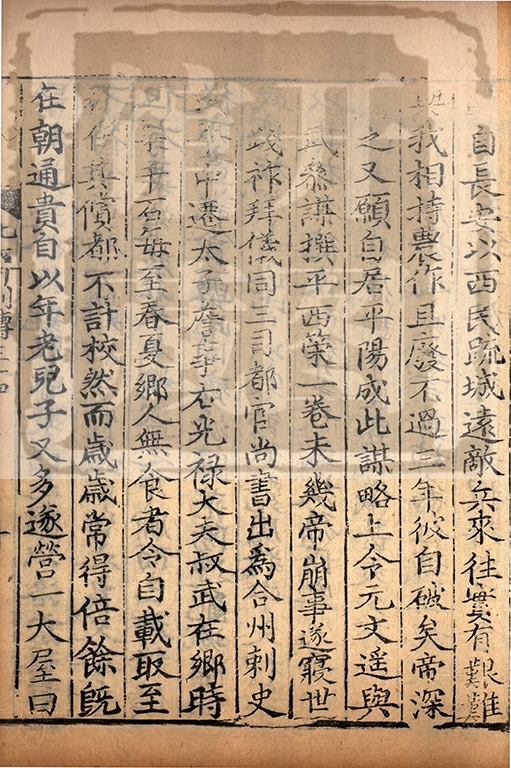 自長安以西民疏城遠敵兵來往實有艱難
我相持農作且廢不過三年彼自破矣帝深
之又願自居平陽成此謀略上令元文遥與
武參謀撰平西策一卷未幾帝崩事遂寢世
踐祚拜儀同三司都官尚書出爲合州刺史
中遷太子詹事右光禄大夫叔武在鄉時
千石每至春夏鄉人無食者令自載取至
其償都不計校然而歳歳常得倍餘旣
在朝通貴自以年老兒子又多遂營一大屋曰
列傳三十四